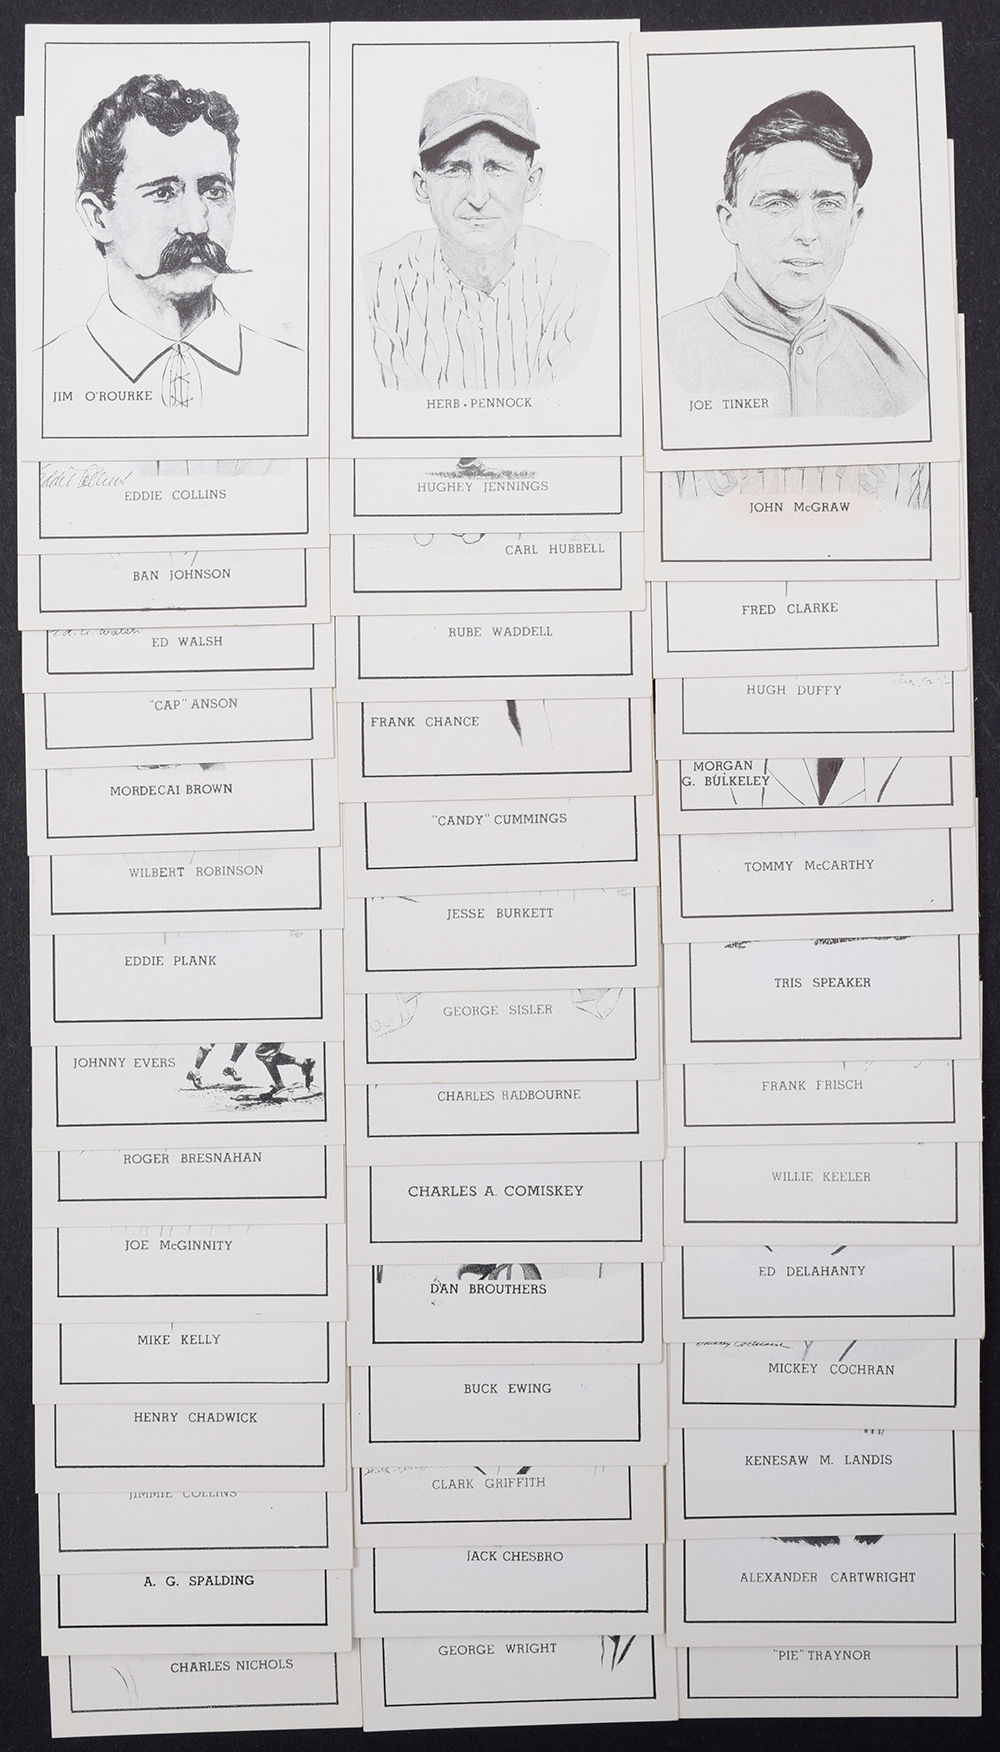 JIM O'ROURKE
EDDIE COLLINS
BAN JOHNSON
ED WALSH
"CAP" ANSON
MORDECAI BROWN
WILBERT ROBINSON
EDDIE PLANK
JOHNNY EVERS
ROGER BRESNAHAN
JOE McGINNITY
MIKE KELLY
HENRY CHADWICK
JIMMIE COLLINS
A. G. SPALDING
CHARLES NICHOLS
NY
HERB. PENNOCK
HUGHEY JENNINGS
CARL HUBBELL
RUBE WADDELL
FRANK CHANCE
"CANDY" CUMMINGS
JESSE BURKETT
GEORGE SISLER
CHARLES RADBOURNE
CHARLES A. COMISKEY
DAN BROUTHERS
BUCK EWING
CLARK GRIFFITH
JACK CHESBRO
GEORGE WRIGHT
JOE TINKER
JOHN McGRAW
FRED CLARKE
HUGH DUFFY
MORGAN
G. BULKELEY
TOMMY McCARTHY
TRIS SPEAKER
FRANK FRISCH
WILLIE KEELER
ED DELAHANTY
MICKEY COCHRAN
KENESAW M. LANDIS
ALEXANDER CARTWRIGHT
"PIE" TRAYNOR